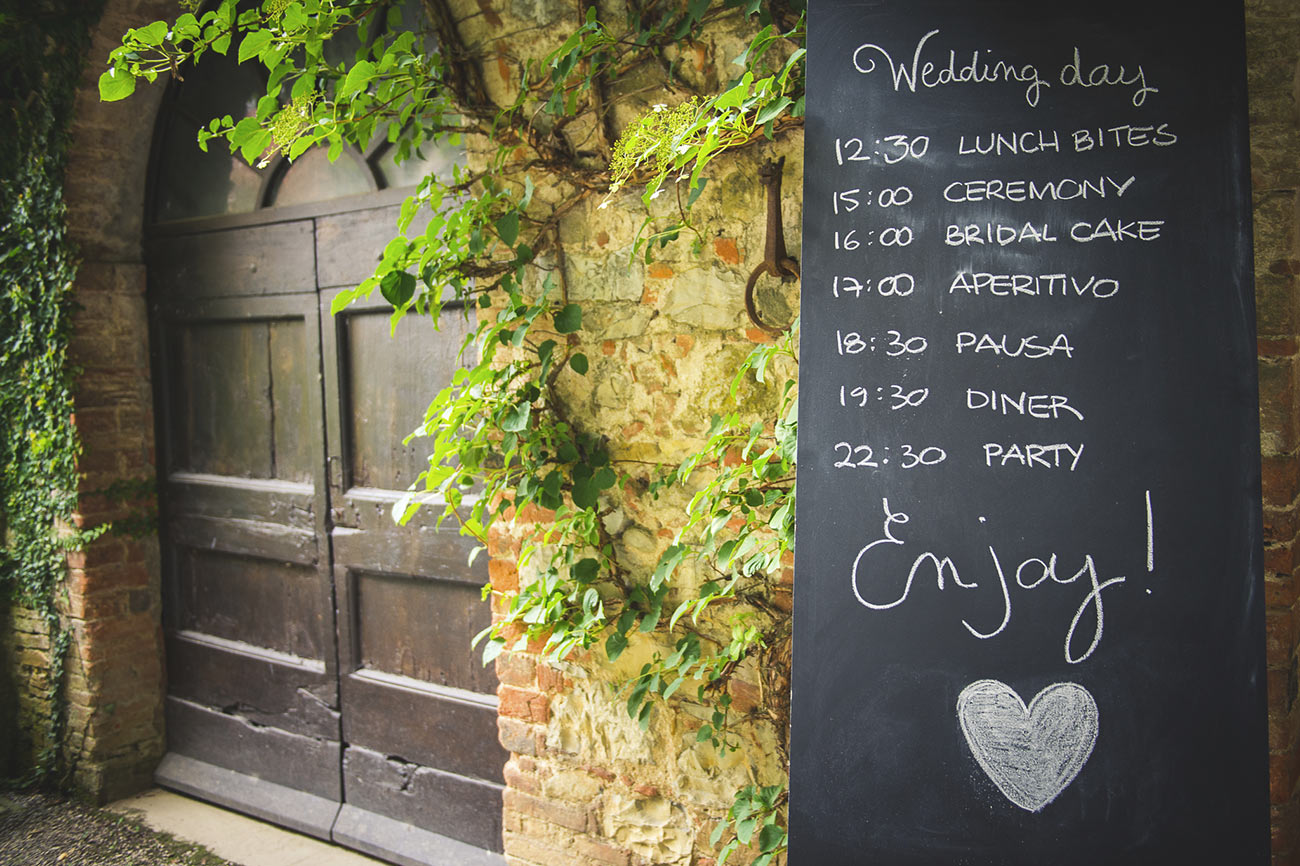 Wedding day
12:30 LUNCH BITES
15:00 CEREMONY
16:00 BRIDAL CAKE
17:00 APERITIVO
18:30 PAUSA
19:30 DINER
22:30 PARTY
Enjoy!